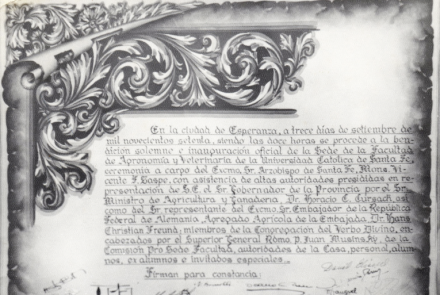 En la ciudad de Esperanza, a trece días de setiembre de
mil novecientos setenta, siendo las doce horas se procede a la ben-
dición solemne e inauguración oficial de la Sede de la Facultad
de Agronomía y Veterinaria de la Universidad Católica de Santa Fe,
ceremonia a cargo del Excmo. Sr. Arzobispo de Santa Fe, Mons. Vi-
cente F. Zaspe, con asistencia de altas autoridades presididas en re-
presentación de S.E. el Sr. Gobernador de la Provincia, por el Sr.
Ministro de Agricultura y Ganadería, Dr. Horacio C. así
como del Sr. representante del Excmo. Sr. Embajador de la República
Federal de Alemania, Agregado Agrícola de la Embajada, Dr. Hans
Christian Freund; miembros de la Congregación del Verbo Divino, en-
cabezados por el Superior General Rdmo. P. Juan de la
Comisión Pro Sede Facultad, autoridades de la Casa, personal, alum-
nos, ex alumnos e invitados especiales.
Firman para constancia: